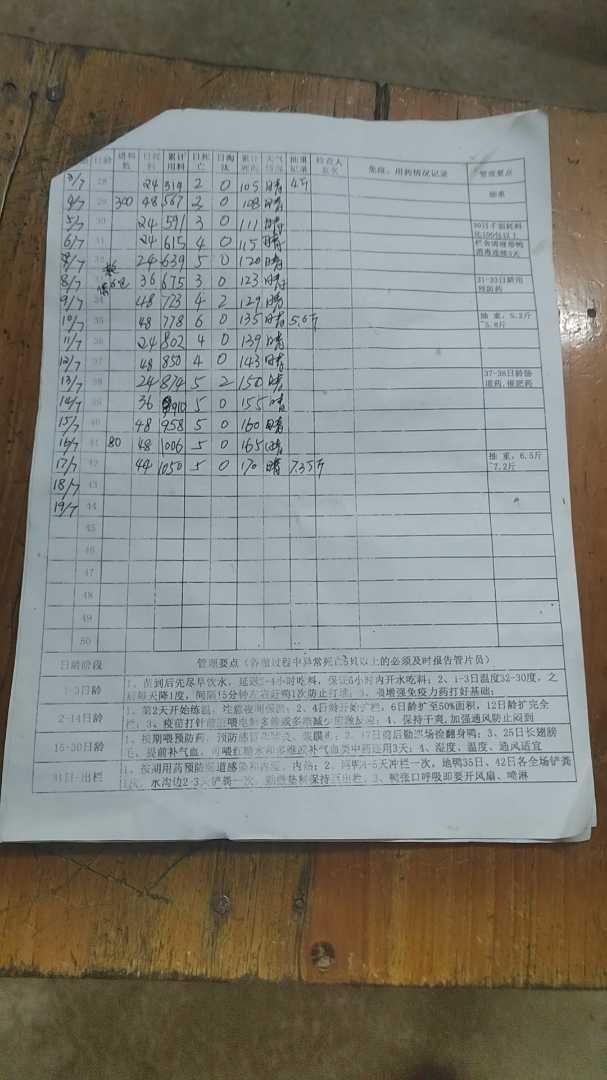 日龄 进料数 日耗料 累计用料 日死亡 日淘汰 累计死淘 天气情况 抽重记录 检查人签名 免疫、用药情况记录 管理要点
3/7 28 24 519 2 0 105 晴 4斤 抽重
4/7 29 300 48 567 2 0 108 晴
5/7 30 24 591 3 0 111 晴
6/7 31 24 615 4 0 115 晴 栏舍清理带鸭消毒连续3天
32 24 639 5 0 120 晴
8/7 36 675 3 0 123 晴 31-33日龄用预防药
9/7 34 48 723 4 2 129 晴
10/7 35 48 778 6 0 135 晴 5.6斤 抽重:5.2斤~5.8斤
11/7 36 24 802 4 0 139 晴
12/7 37 48 850 4 0 143 晴
13/7 38 24 874 5 2 150 晴 37-38日龄肠道药,催肥药
14/7 39 36 910 5 0 155 晴
15/7 40 48 958 5 0 160 晴
16/7 41 80 48 1006 5 0 165 晴
17/7 42 44 1050 5 0 170 晴 7.3斤 抽重:6.5斤~7.2斤
18/7 43
19/7 44
45
46
47
48
49
50
日龄阶段 管理要点(各阶段过程中异常死亡5只以上的必须及时报告管片员)
1-3日龄 1、苗到后先尽早饮水,延迟2-4小时吃料,保证6小时内开水吃料;2、1-3日温度32-30度,之
后每天降1度,间隔15分钟左右赶鸭1次防止打堆;3、项增强免疫力药打好基础;
2-14日龄 1、第2天开始炼温,注意夜间保温;2、4日龄开始扩栏;6日龄扩至50%面积,12日龄扩完全
栏;3、疫苗打针前后喂电解多维或多维减少应激反应;4、保持干爽,加强通风防止闷到
15-30日龄 1、按期喂预防药,预防感 2、17日前后勤巡场捡翻身鸭;3、25日长翅膀
毛,提前补气血,可喂红糖水和多维或补气血类中药连用3天;4、湿度、温度、通风适宜
31日-出栏 1、按期用药预防肠道感染和内毒,内热;2、网鸭4-5天冲栏一次,地鸭35日、42日各全场铲粪
1次,水沟边2-3天铲粪一次,勤撒垫料保持至出栏;3、鸭张口呼吸即要开风扇、喷淋